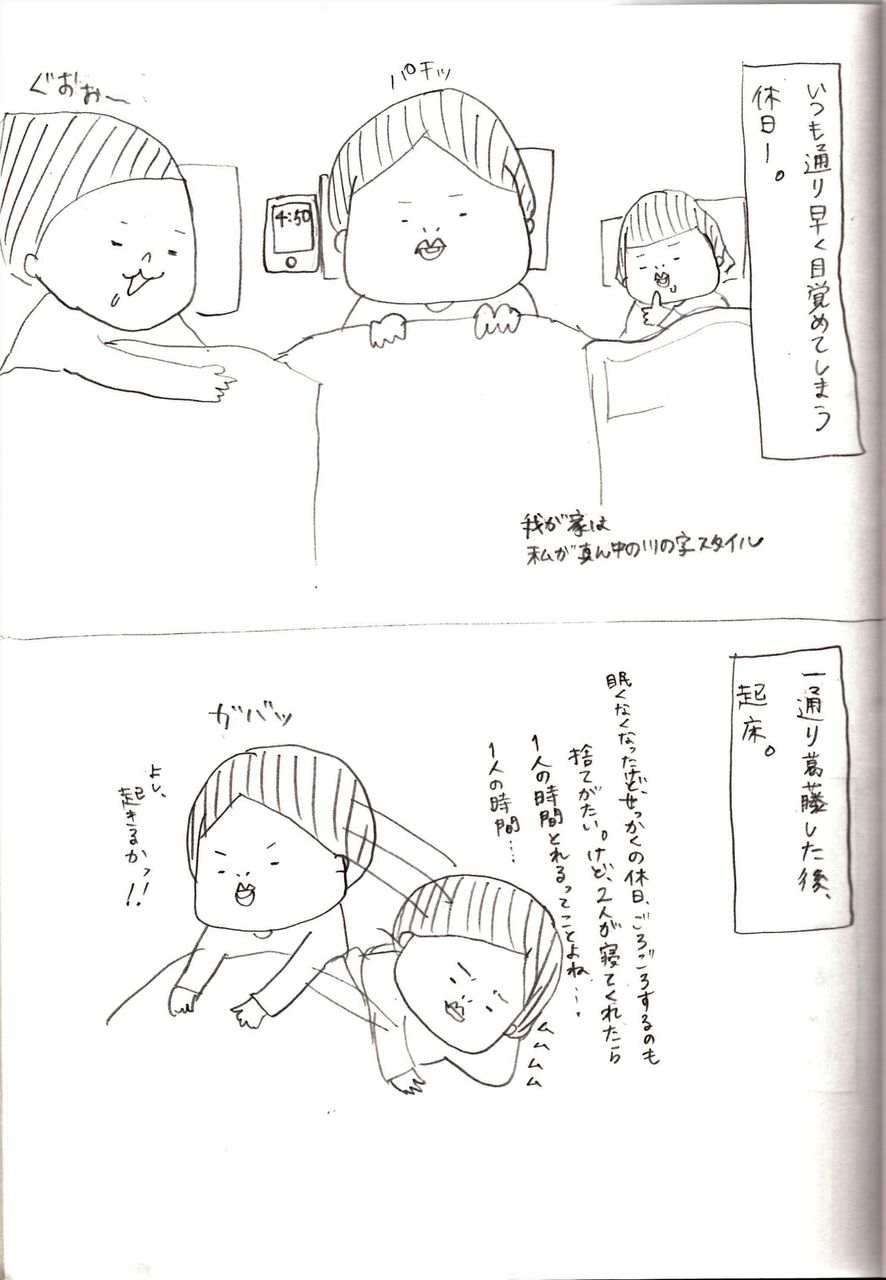 いつも通り早く目覚めてしまう
休日ー。
パチッ
ぐおお〜
4:50
我が家は
私が真ん中の川の字スタイル
一通り葛藤した後、
起床。
眠くなくなったけど、せっかくの休日、ごろごろするのも
捨てがたい。けど、2人が寝てくれたら
1人の時間とれるってことよね…。
1人の時間…
ムムムム
ガバッ
よし、
起きるかっ!!